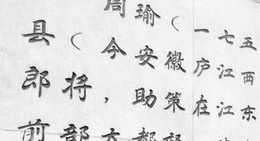 五西东
七江江
一庐在
（徽策督
瑜安助都
周今，大
（将，部
县郎前